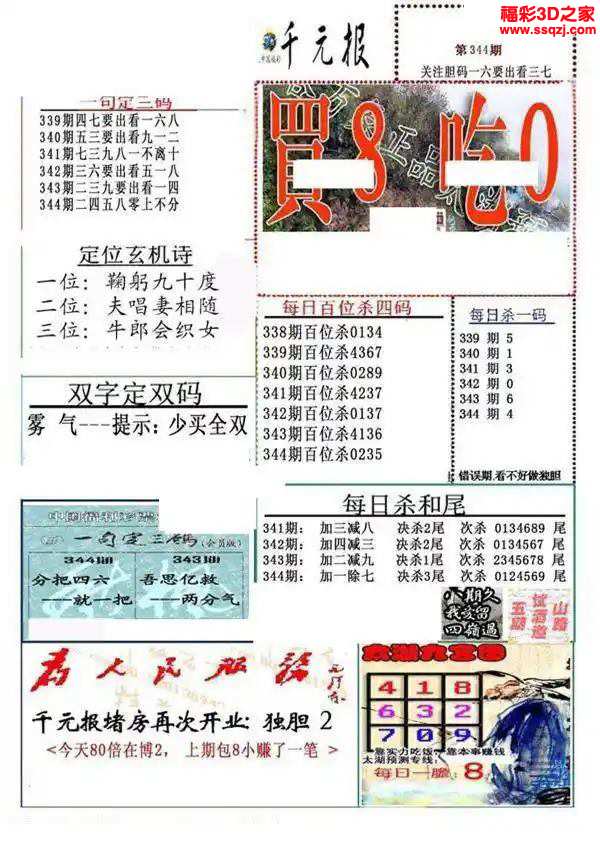 福彩3D之家
www.ssqzj.com
千元报
第344期
关注胆码一六要出看三七
一句定三码
339期四七要出看一六八
340期五三要出看九一二
341期七三九八一不离十
342期三六要出看五一八
343期二三九要出看一四
344期二四五八零上不分
買8吃0
定位玄机诗
一位：鞠躬九十度
二位：夫唱妻相随
三位：牛郎会织女
每日百位杀四码
338期百位杀0134
339期百位杀4367
340期百位杀0289
341期百位杀4237
342期百位杀0137
343期百位杀4136
344期百位杀0235
每日杀一码
339 期 5
340 期 1
341 期 3
342 期 0
343 期 6
344 期 4
错误期,看不好做独胆
双字定双码
雾 气---提示：少买全双
每日杀和尾
341期： 加三减八 决杀2尾 次杀 0134689 尾
342期： 加四减三 决杀2尾 次杀 0134567 尾
343期： 加二减九 决杀1尾 次杀 2345678 尾
344期： 加一除七 决杀3尾 次杀 0124569 尾
一句定三码(会员版)
344期
分把四六
——就一把
343期
吾思亿救
——两分气
八期久
我爱留
四岭過
为人民服务
千元报堵房再次开业: 独胆 2
<今天80倍在博2， 上期包8小赚了一笔 >
太湖九宫图
4 1 8
6 3 2
7 0 9
靠实力吃饭，靠本事赚钱
太湖预测专线:
每日一胆: 8